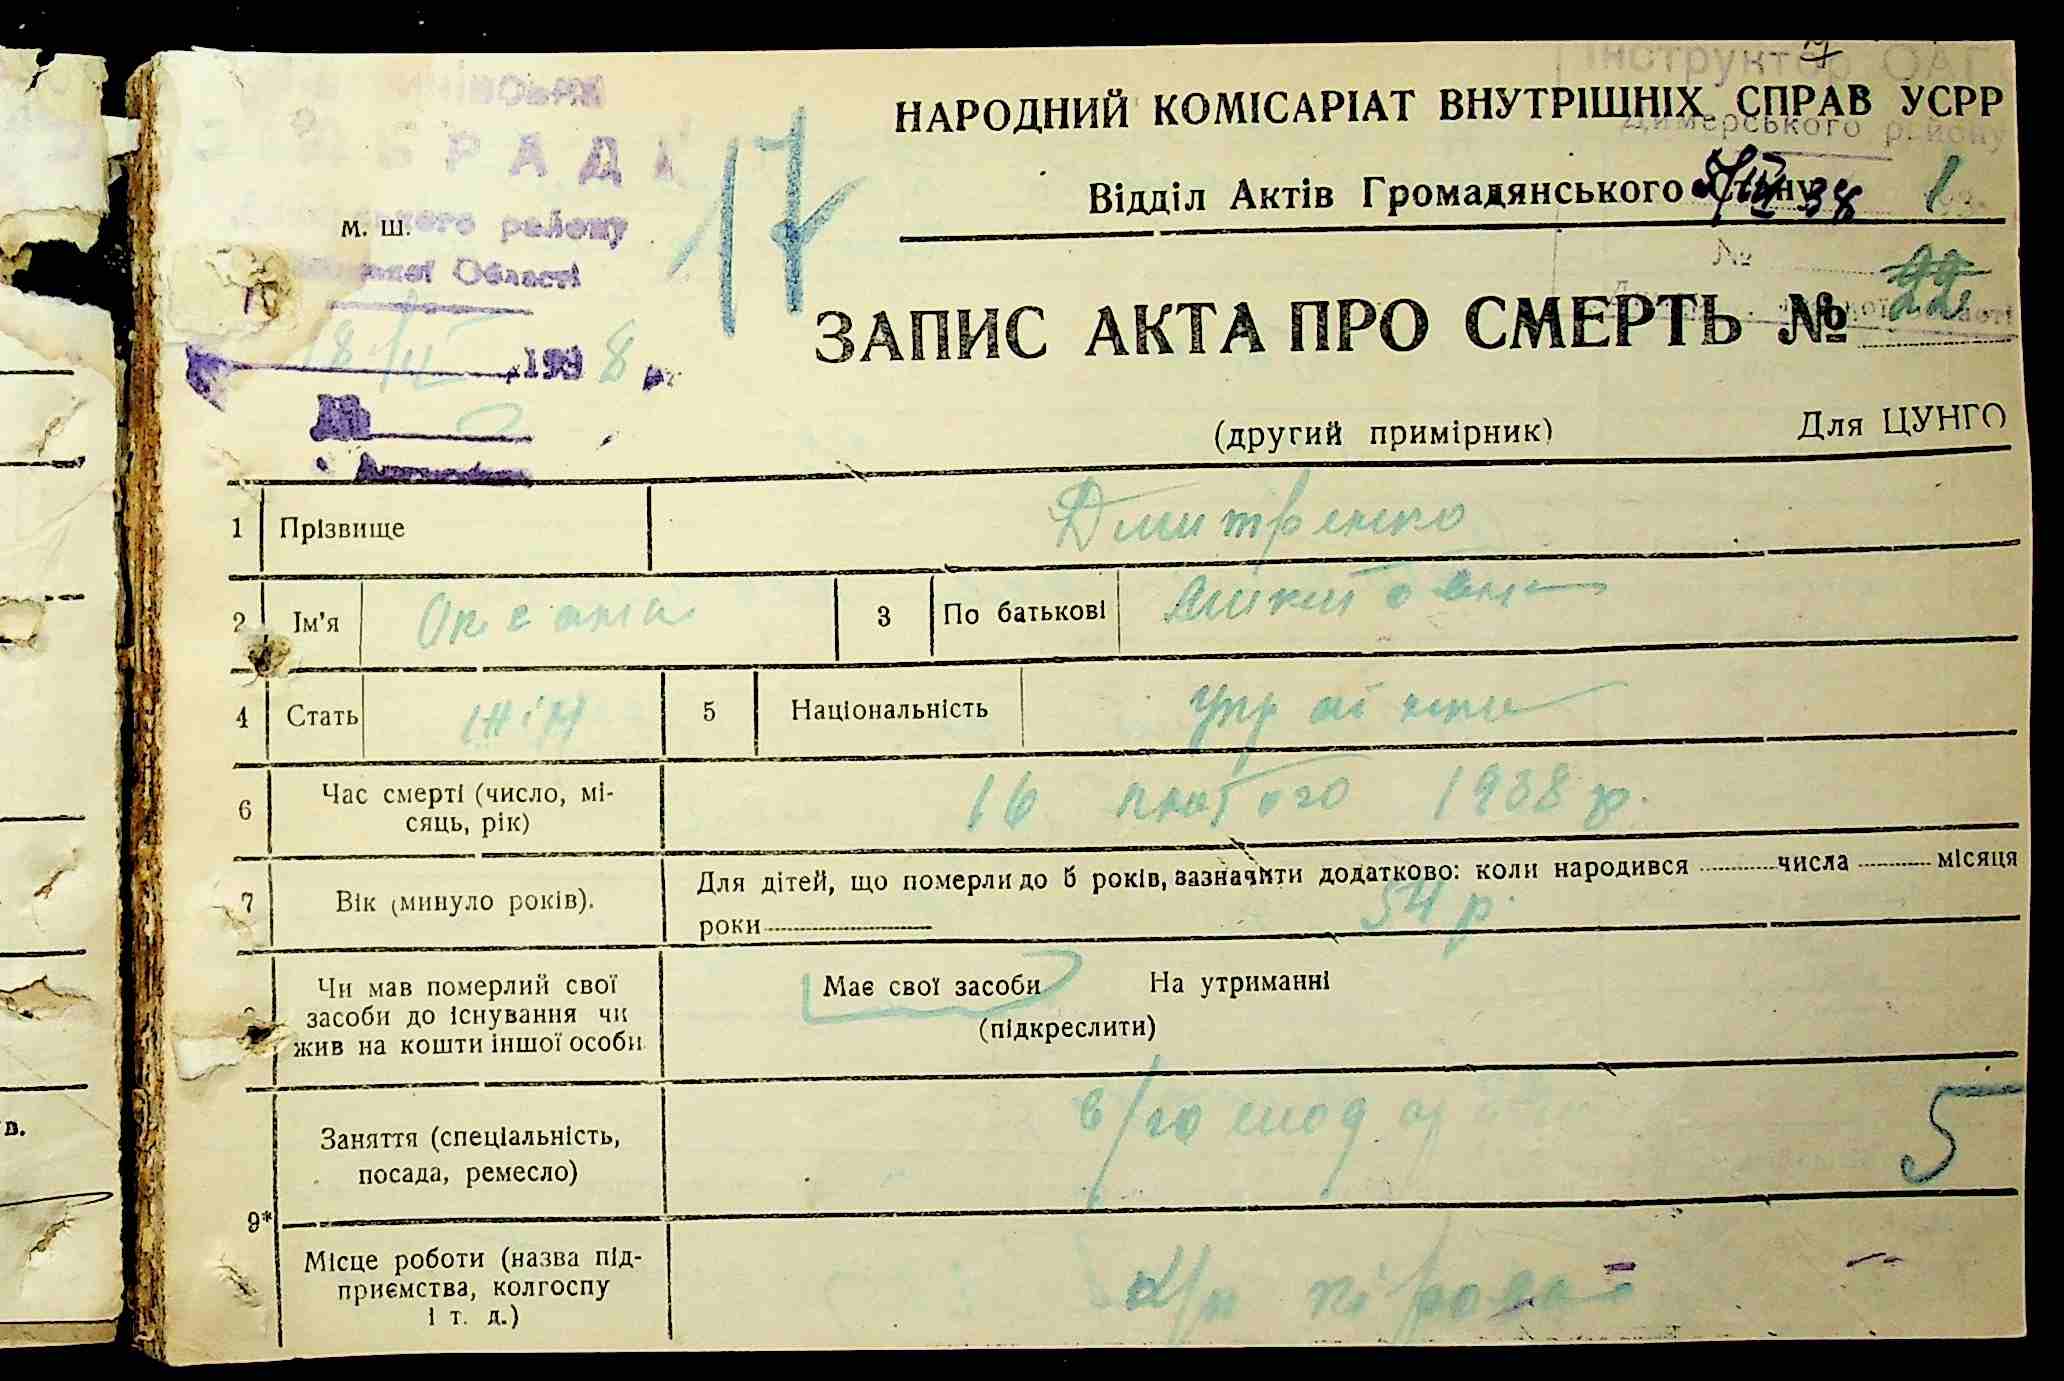 Інструктор ОАГС
НАРОДНИЙ КОМІСАРІАТ ВНУТРІШНІХ СПРАВ УСРР
Димерського району
РАДА
17
Відділ Актів Громадянського Стану
38
1
району
м. ш.
Області
№
22
ЗАПИС АКТА ПРО СМЕРТЬ №
18/II 1938 р.
(другий примірник)
Для ЦУНГО
1 Прізвище Дмитренко
2 Ім'я Оксана 3 По батькові Микитовна
4 Стать жін 5 Національність українка
6 Час смерті (число, мі-
сяць, рік)
16 лютого 1938 р.
7 Вік (минуло років).
Для дітей, що померли до 5 років, зазначити додатково: коли народився числа місяця
роки
54 р.
Чи мав померлий свої
засоби до існування чи
жив на кошти іншої особи
Має свої засоби На утриманні
(підкреслити)
Заняття (спеціальність,
посада, ремесло)
5
9*
Місце роботи (назва під-
приємства, колгоспу
і т. д.)
в.